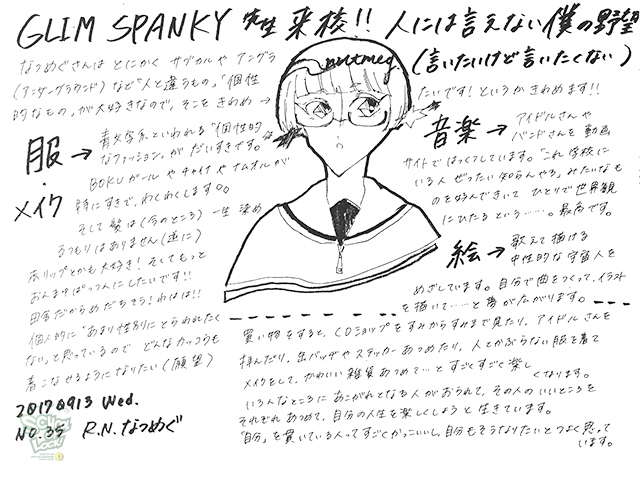 GLIM SPANKY 先生 来校!! 人には言えない僕の野望
(言いたいけど言いたくない)
nutmeg.
なつめぐさんは とにかく サブカルや アングラ
(アンダーグラウンド)など"人と違うもの"、"個性
的なもの"が大好きなので、そこを きわめ→
たいです!というか きわめます!!
服→
・
メイク
青文字系といわれる"個性的
なファッション"が だいすきです。
BOKUガール や チャイナ や ナムオル が
特にすきで、わくわくします。
そして 髪は(今のところ) 一生 染め
るつもりはありません(逆に)
赤リップとかも 大好き! そして もっと
おんまゆぱっつんにしたいです!!
田舎だからめだちそう! わはは!!
個人的に"あまり性別にとらわれたく
ない"と思っているので どんなかっこうも
着こなせるようになりたい(願望)
音楽→
アイドルさんや
バンドさんを 動画
サイトでほっくつしています。"これ学校に
いる人 ぜったい知らんやろ"みたいなも
のを好んできいて ひとりで世界観
にひたるという……。最高です。
絵→
歌えて描ける
中性的な宇宙人を
めざしています。自分で曲をつくって、イラスト
を描いて……と 夢がひろがります。
買い物をすると、CDショップをすみからすみまで見たり、アイドルさんを
拝んだり、缶バッヂやステッカーあつめたり、人とかぶらない服を着て
メイクをして、かわいい雑貨あつめて…と すごくすごく楽しくなります。
いろんなところに あこがれとなる人がおられて、その人のいいところを
それぞれ あつめて、自分の人生を楽しくしようと 生きています。
"自分"を貫いている人ってすごくかっこいいし、自分もそうなりたいと つよく思って
います。
20170913 Wed.
NO.35 R.N.なつめぐ
SCHOOL OF LOCK!